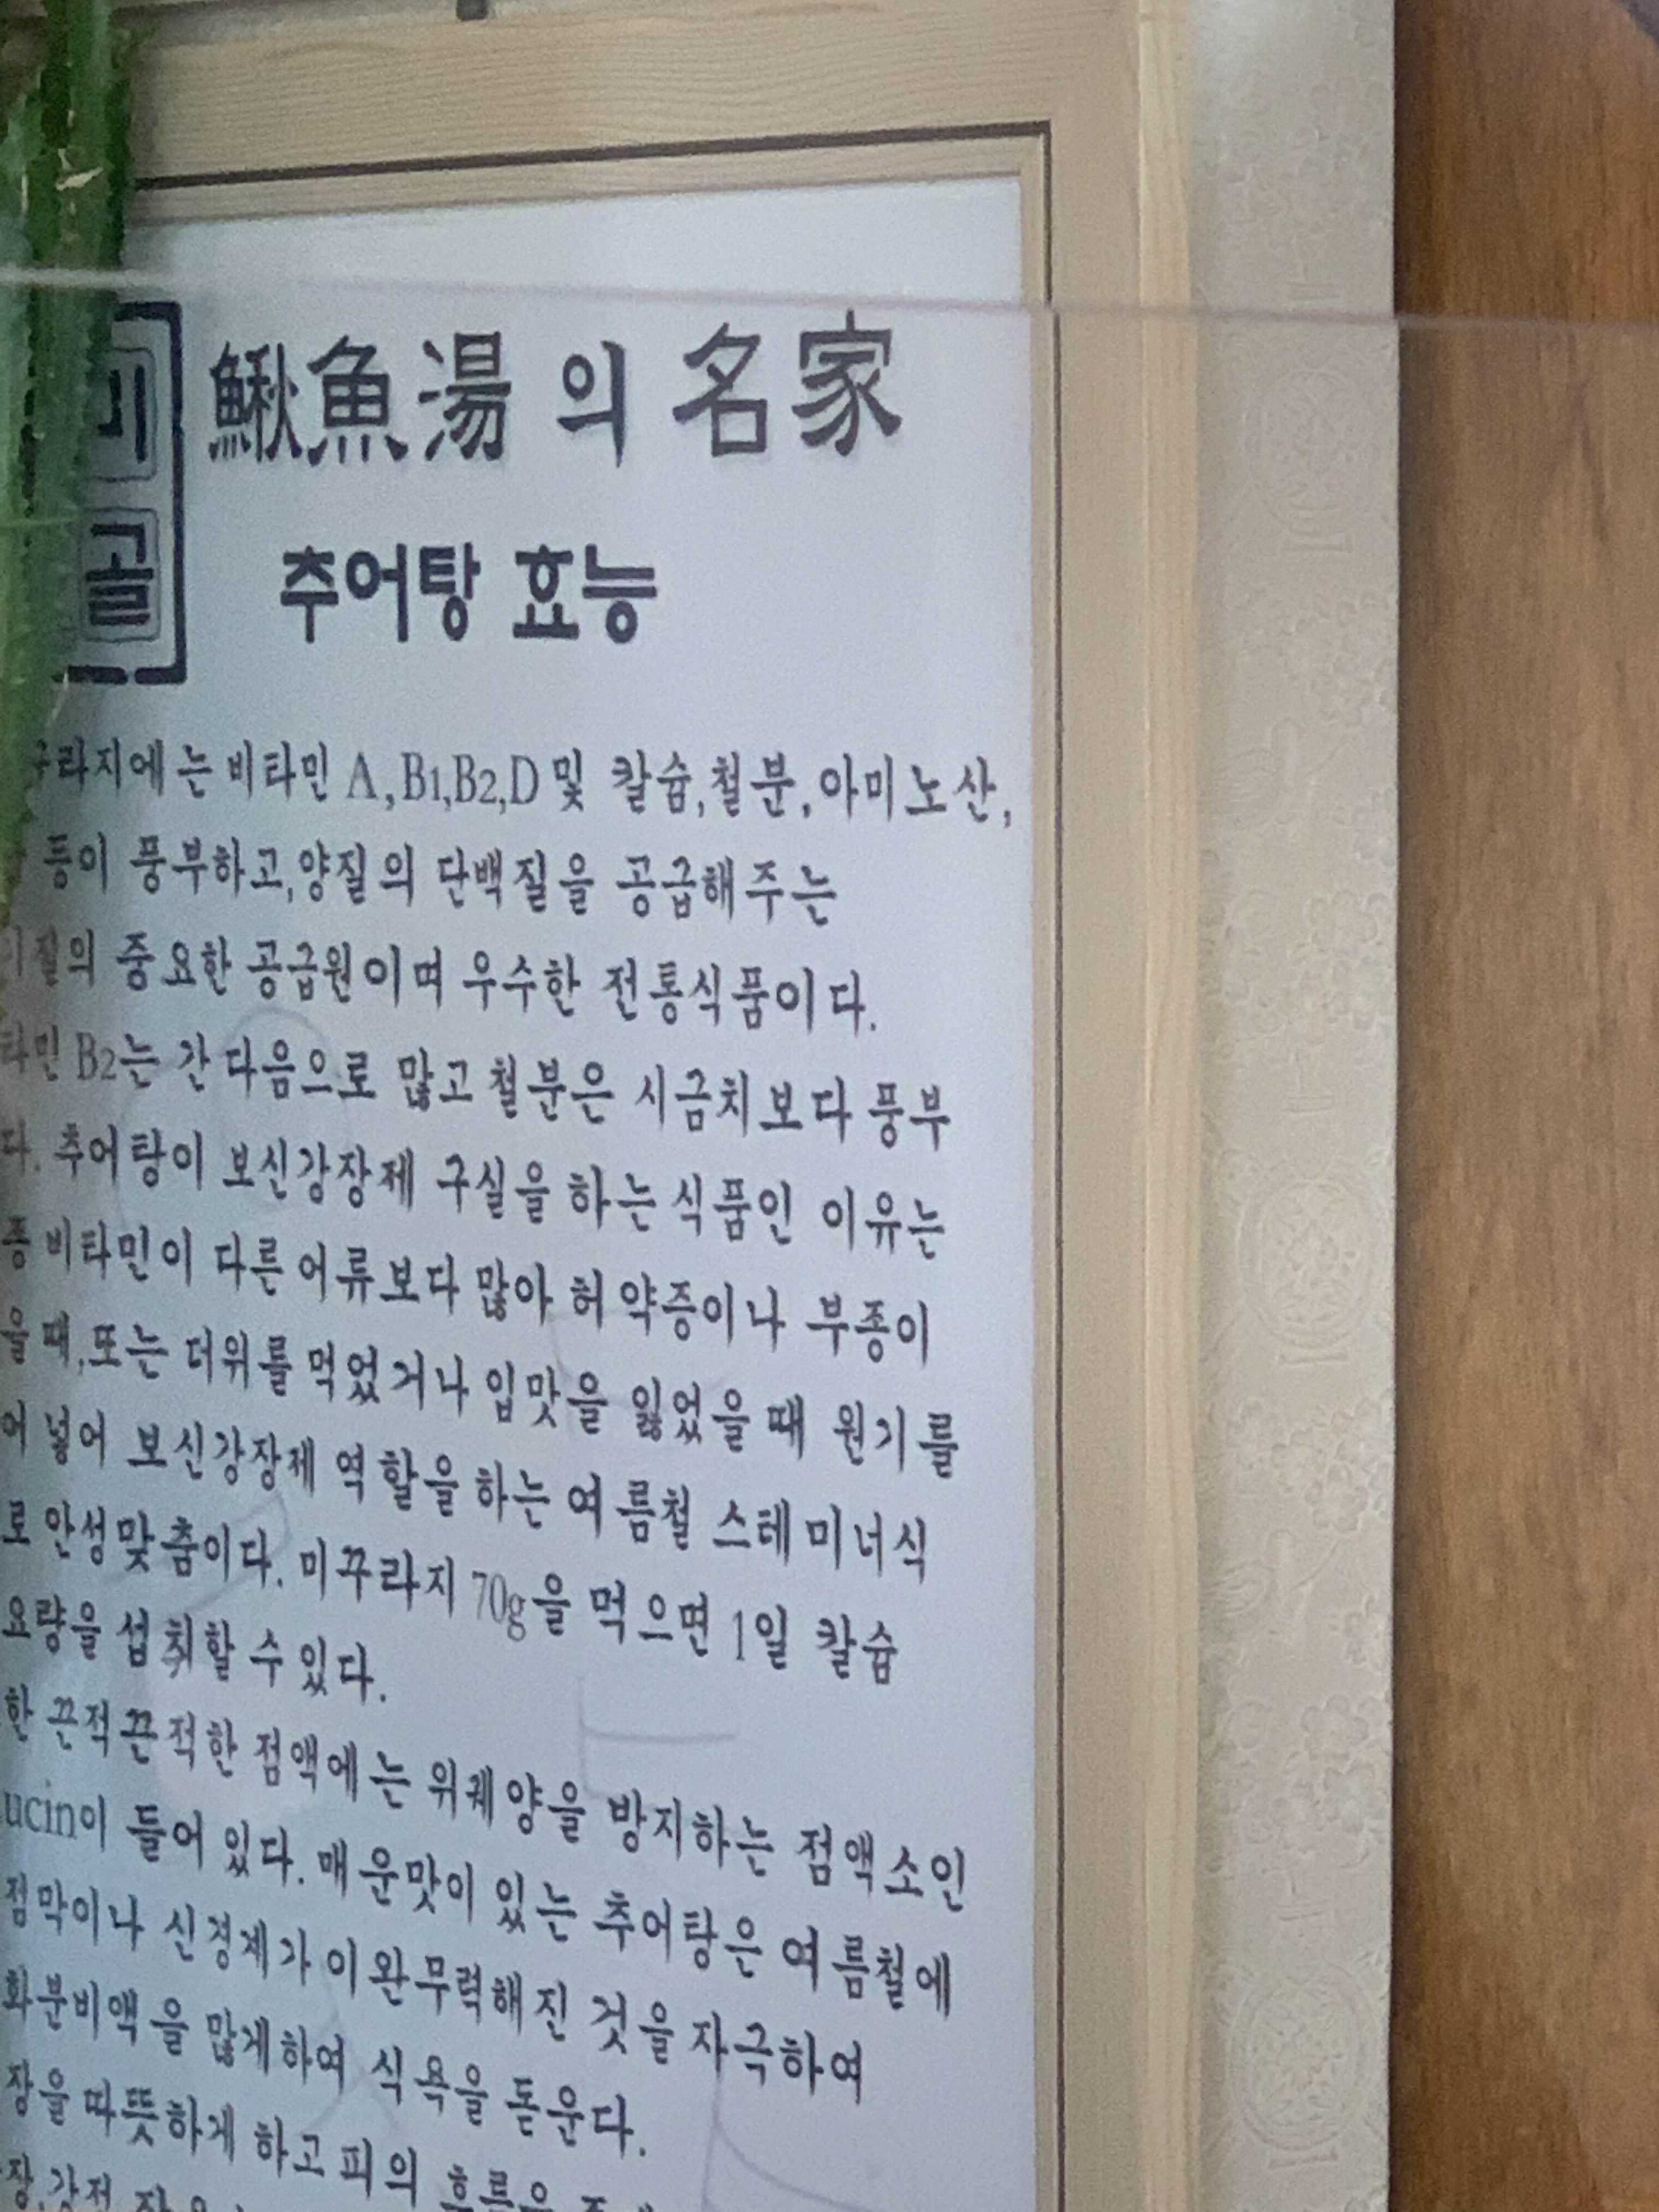 鰍魚湯 의 名家
골
추어탕 효능
라지에는 비타민 A,B1,B2,D 및 칼슘,철분,아미노산,
등이 풍부하고,양질의 단백질을 공급해주는
질의 중요한 공급원이며 우수한 전통식품이다.
타민 B2는 간 다음으로 많고 철분은 시금치보다 풍부
다. 추어탕이 보신강장제 구실을 하는 식품인 이유는
종 비타민이 다른 어류보다 많아 허약증이나 부종이
을때,또는 더위를 먹었거나 입맛을 잃었을 때 원기를
어 넣어 보신강장제 역할을 하는 여름철 스테미너식
로 안성맞춤이다. 미꾸라지 70g을 먹으면 1일 칼슘
요량을 섭취할 수 있다.
한 끈적끈적한 점액에는 위궤양을 방지하는 점액소인
ucin이 들어 있다. 매운맛이 있는 추어탕은 여름철에
점막이나 신경계가 이완무력해진 것을 자극하여
화분비액을 많게하여 식욕을 돋운다.
장을 따뜻하게 하고 피의